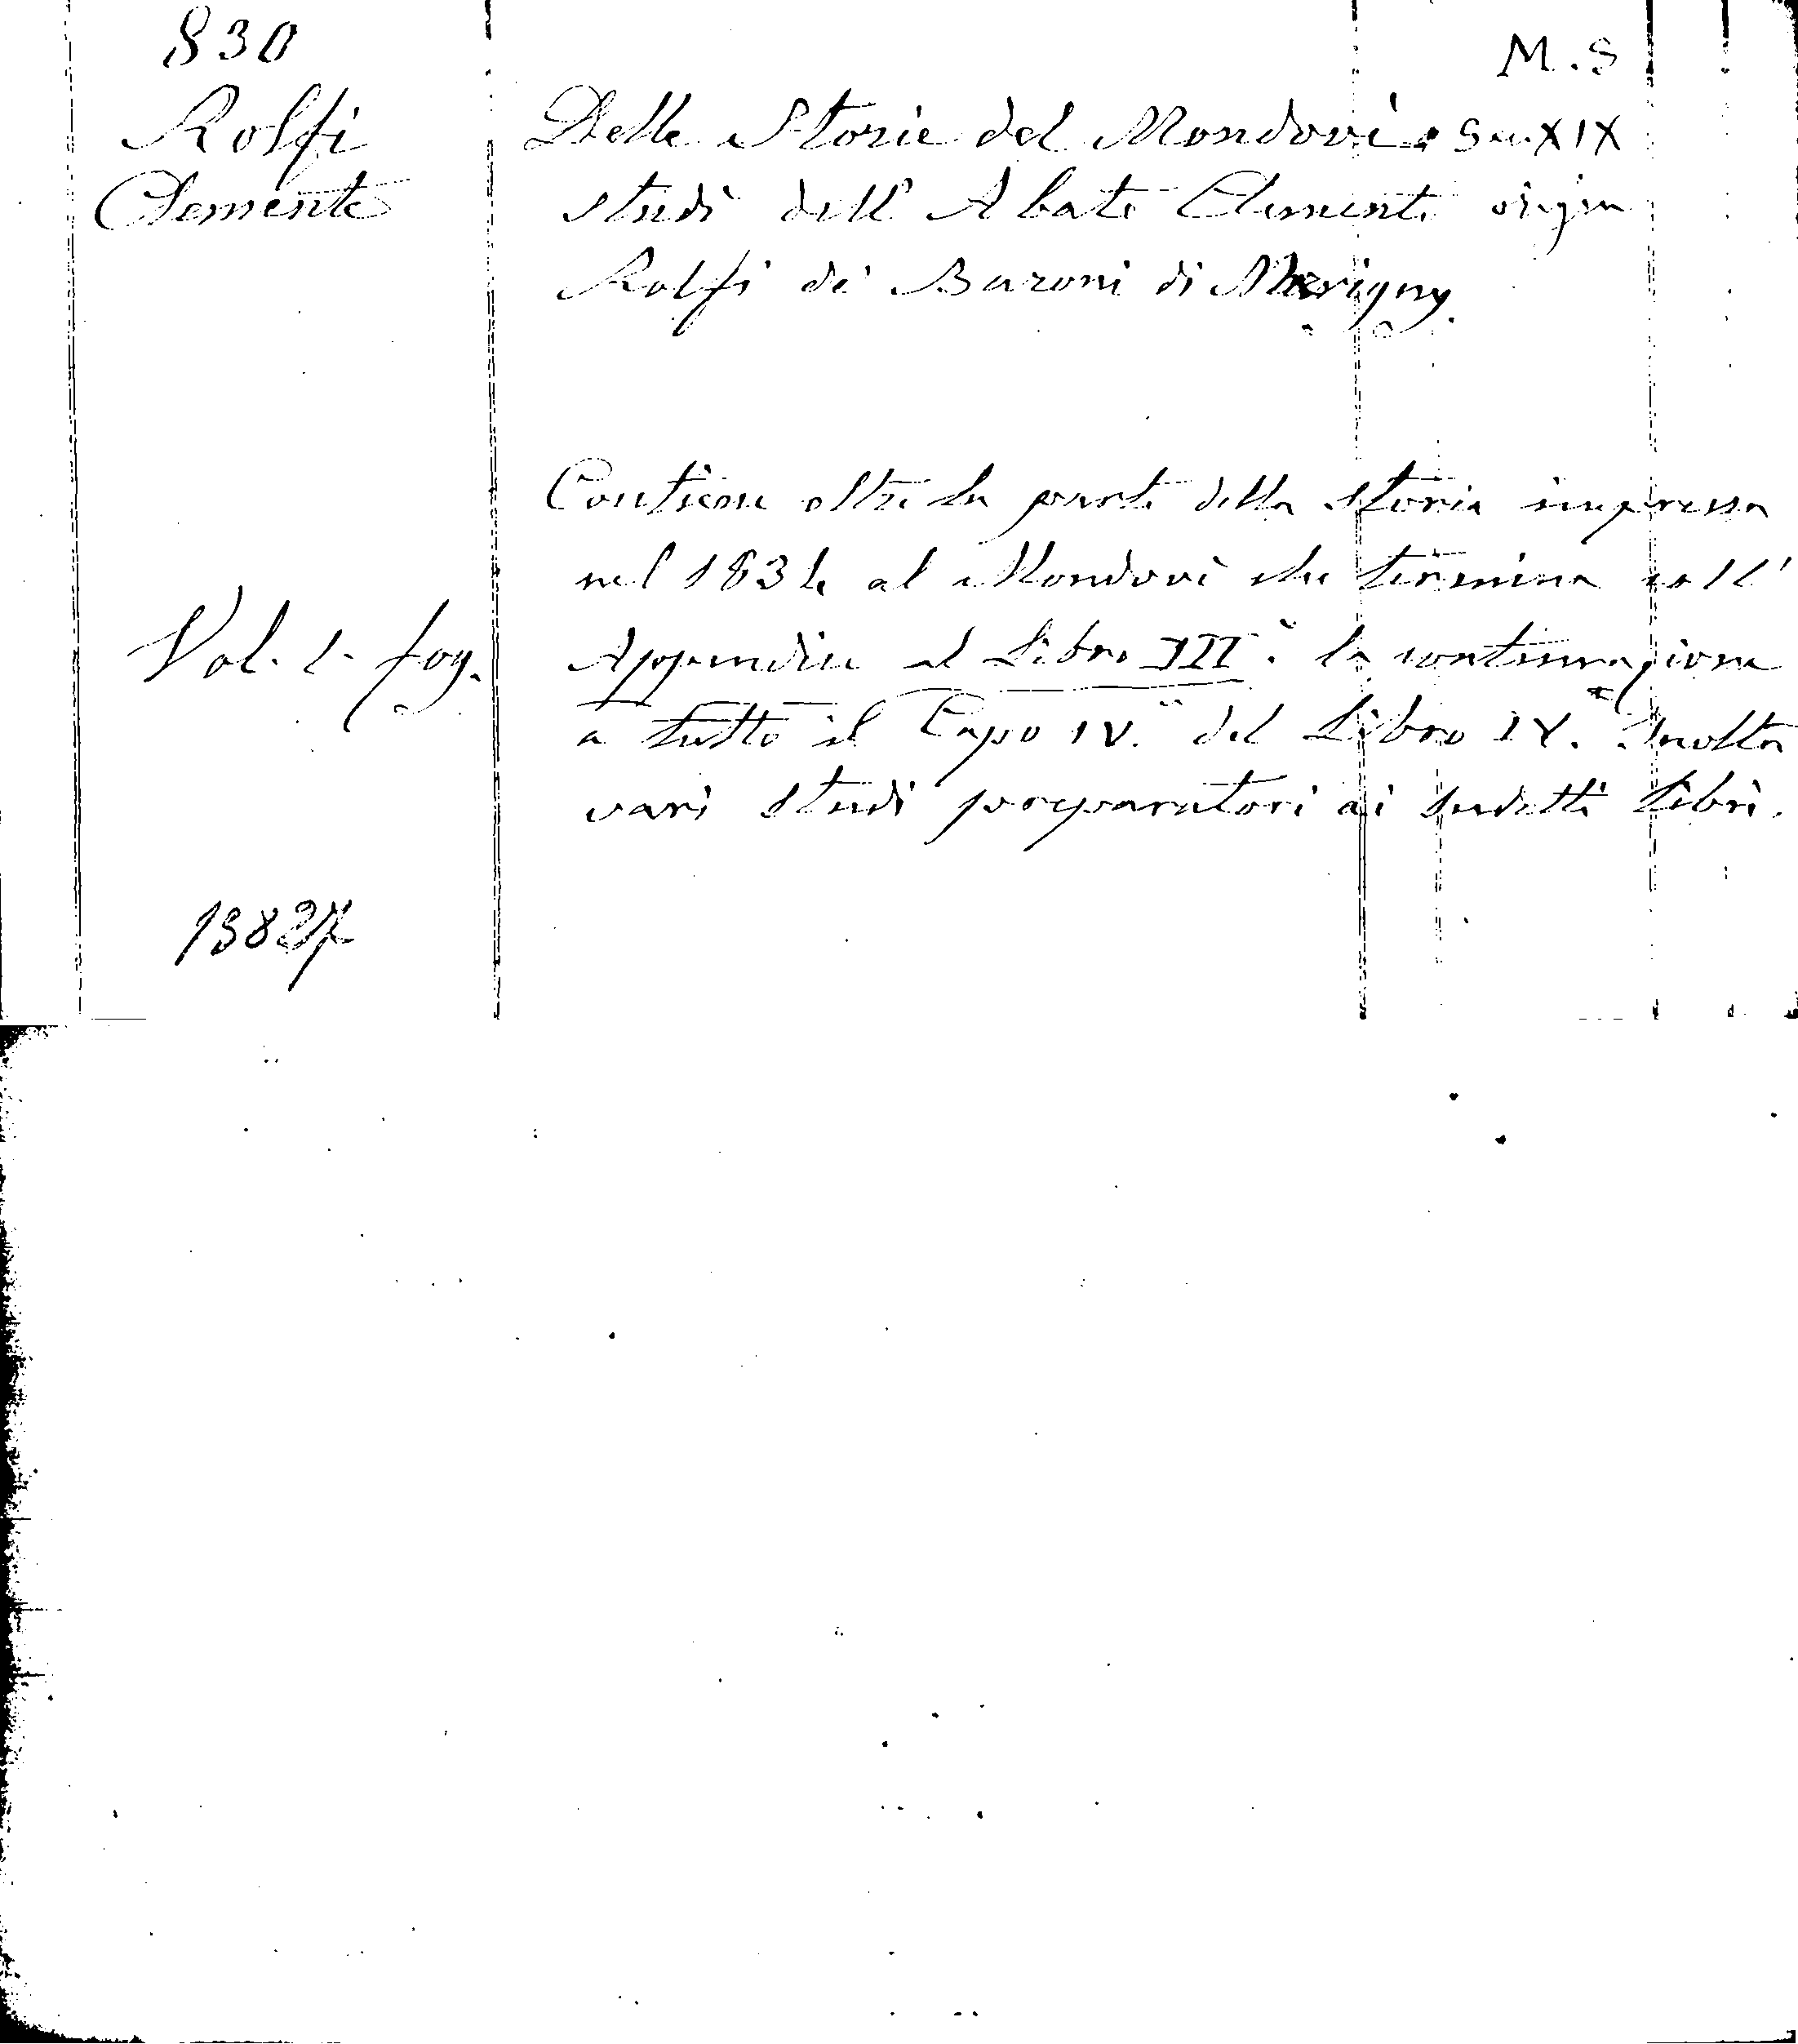 830
M.S
Rolfi
Clemente
Delle Storie del Mondovì Sec. XIX
studi dell' Abate Clemente origin
Rolfi dei Baroni di Marigny.
Contiene oltre la parte della storia impressa
nel 1834 al Mondovì che termina coll'
Vol. 1. fog.
Appendice al Libro III.° la continuazione
a tutto il Capo IV.° del Libro IX.° Inoltre
vari studi preparatori ai sudetti libri.
13827